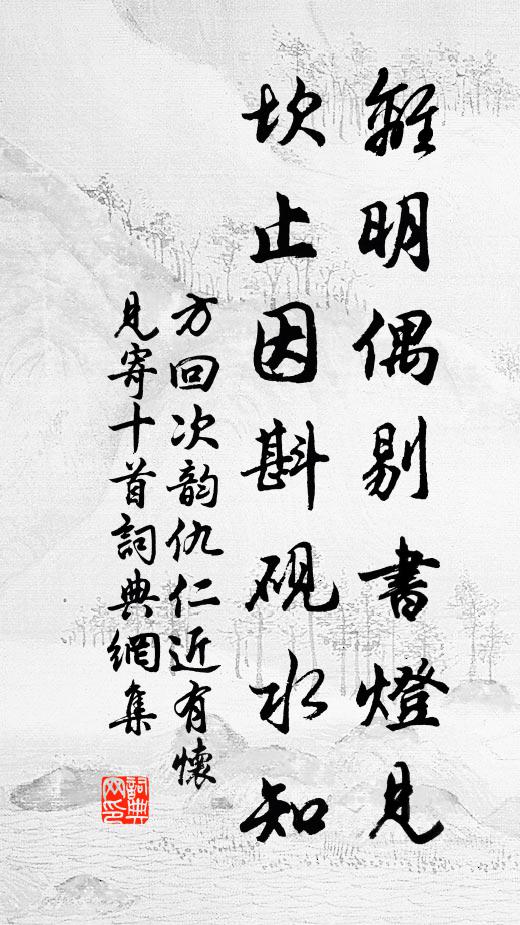 離明偶剔書燈見
坎止因斟硯水知
方回次韵仇仁近有懷
見寄十首詞典網集
詞典网印